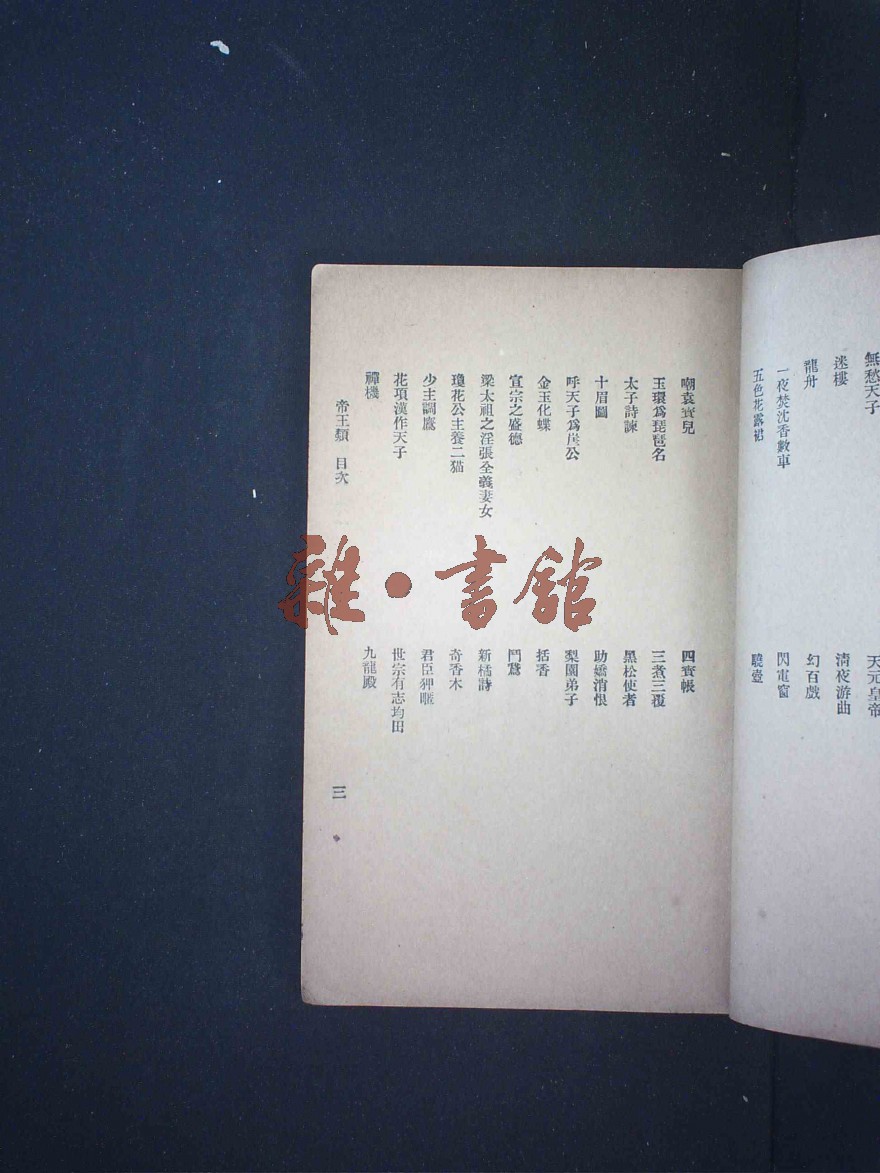 無愁天子
天元皇帝
迷樓
清夜游曲
龍舟
幻百戲
一夜焚沈香數車
閃電窗
五色花露裙
驍壺
嘲袁寶兒
四寶帳
玉環爲琵琶名
三煮三覆
太子詩諫
黑松使者
十眉圖
助嬌消恨
呼天子爲崖公
梨園弟子
金玉化蝶
括香
宣宗之盛德
鬥鵞
梁太祖之淫張全義妻女
新橘詩
瓊花公主養二猫
奇香木
少主調鷹
君臣狎暱
花項漢作天子
世宗有志均田
禪機
九龍殿
帝王類 目次
三
雜·書館